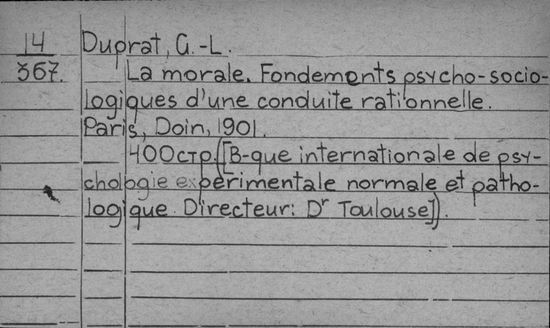 14 Duprat, G.-L.
367. La morale. Fondements psycho-socio-
logiques d'une conduite rationnelle.
Paris, Doin, 1901.
400стр. ([B-que internationale de psy-
chologie expérimentale normale et patho-
logique. Directeur: Dr Toulouse]).